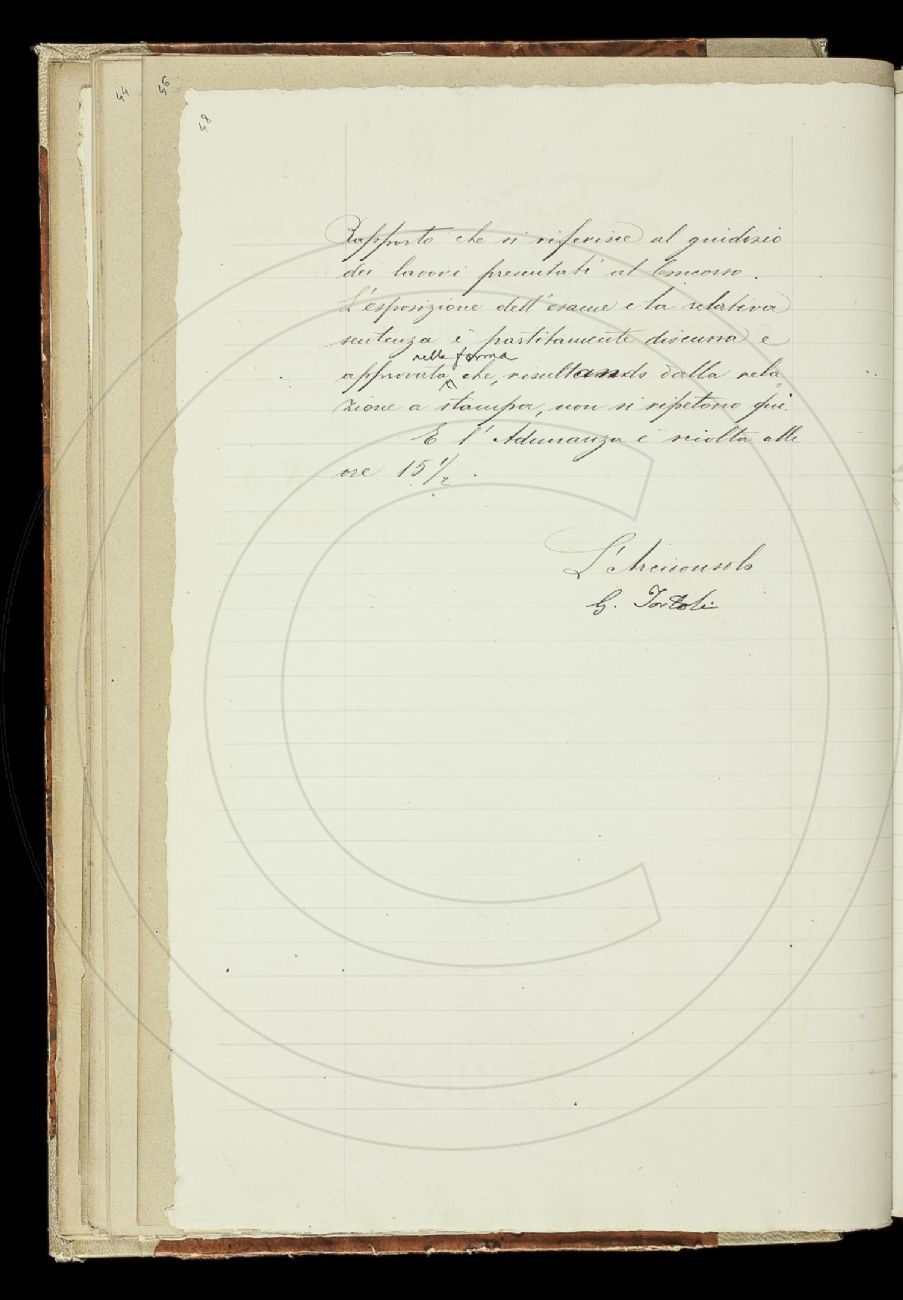 44
46
48
Rapporto che si riferisce al giudizio
dei lavori presentati al Concorso.
L'esposizione dell'esame e la relativa
sentenza è partitamente discussa e
nella forma
approvata che, resultando dalla rela=
zione a stampa, non si ripetono qui.
E l'Adunanza è sciolta alle
ore 15 1/2.
L'Arciconsolo
G. Tortoli